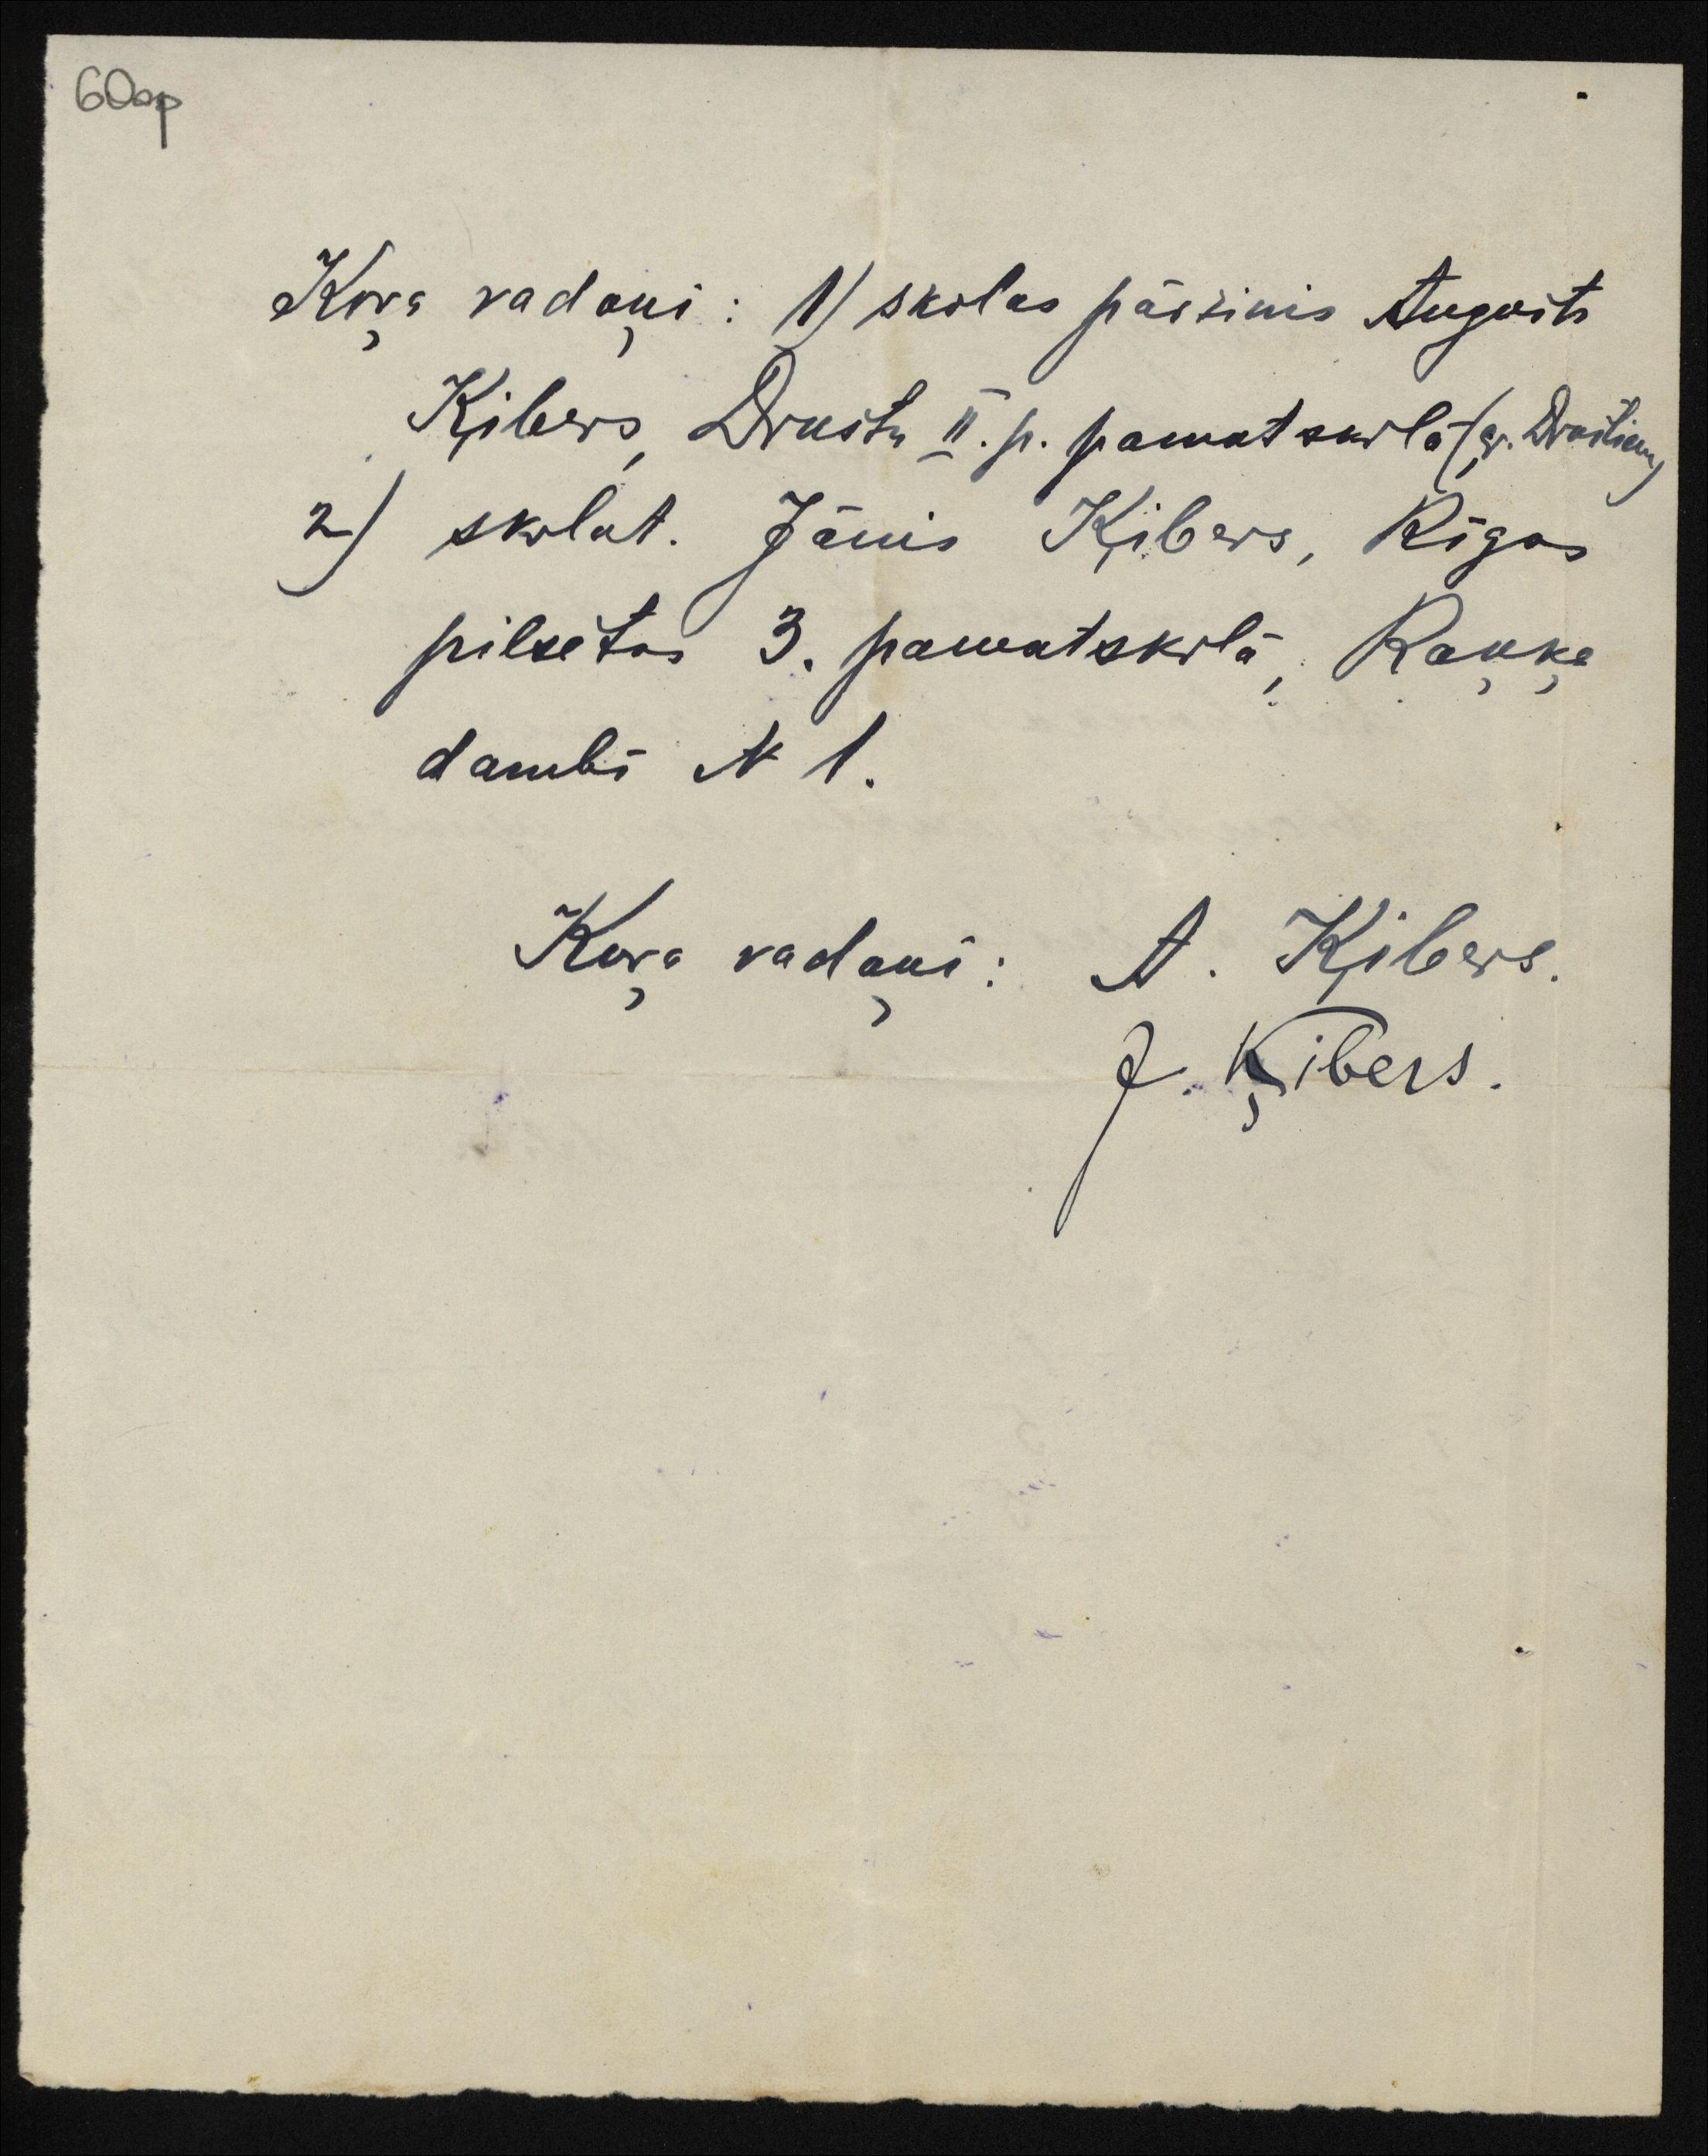 60op
Koŗa vadoņi: 1) skolas pārzinis Augusts
Ķibers, Drustu II. p. pamatskolā (c. Drustiem)
2) skolot. Jānis Ķibers, Rīgas
pilsētas 3. pamatskolā, Raņķa
dambī N 1.
Koŗa vadoņi: A. Ķibers.
J. Ķibers.